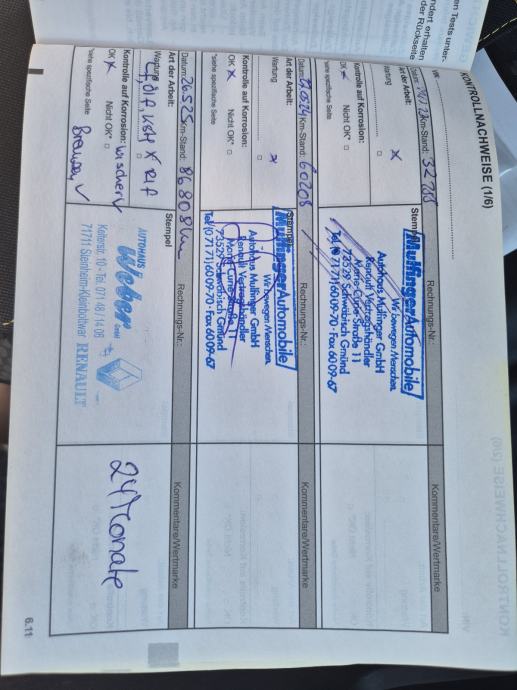 en Tests unter-
ndert erhalten
der Rückseite
KONTROLLNACHWEISE (1/6)
VIN:
Km-Stand:
Rechnungs-Nr.:
Kommentare/Wertmarke
Art der Arbeit:
Stempel
Wartung
x
Kontrolle auf Korrosion:
OK x Nicht OK*
*siehe spezifische Seite
Mulfinger Automobile
Wir bewegen Menschen.
Autohaus Mulfinger GmbH
Renault Vertragshändler
Marie-Curie-Straße 11
73529 Schwäbisch Gmünd
Tel. (0 71 71) 6009-70 · Fax 6009-67
Datum: Km-Stand: 60208
Rechnungs-Nr.:
Kommentare/Wertmarke
Art der Arbeit:
Stempel
Wartung
x
Kontrolle auf Korrosion:
OK x Nicht OK*
*siehe spezifische Seite
Mulfinger Automobile
Wir bewegen Menschen.
Autohaus Mulfinger GmbH
Renault Vertragshändler
Marie-Curie-Straße 11
73529 Schwäbisch Gmünd
Tel. (0 71 71) 6009-70 · Fax 6009-67
Datum: 26.5.25 Km-Stand: 86808 km
Rechnungs-Nr.:
Kommentare/Wertmarke
Art der Arbeit:
Stempel
Wartung
Kontrolle auf Korrosion:
OK x Nicht OK*
*siehe spezifische Seite
AUTOHAUS
Weber GmbH
Kelterstr. 10 · Tel. 0 71 48 / 14 06
71711 Steinheim-Kleinbottwar
RENAULT
24 Monate
6.11